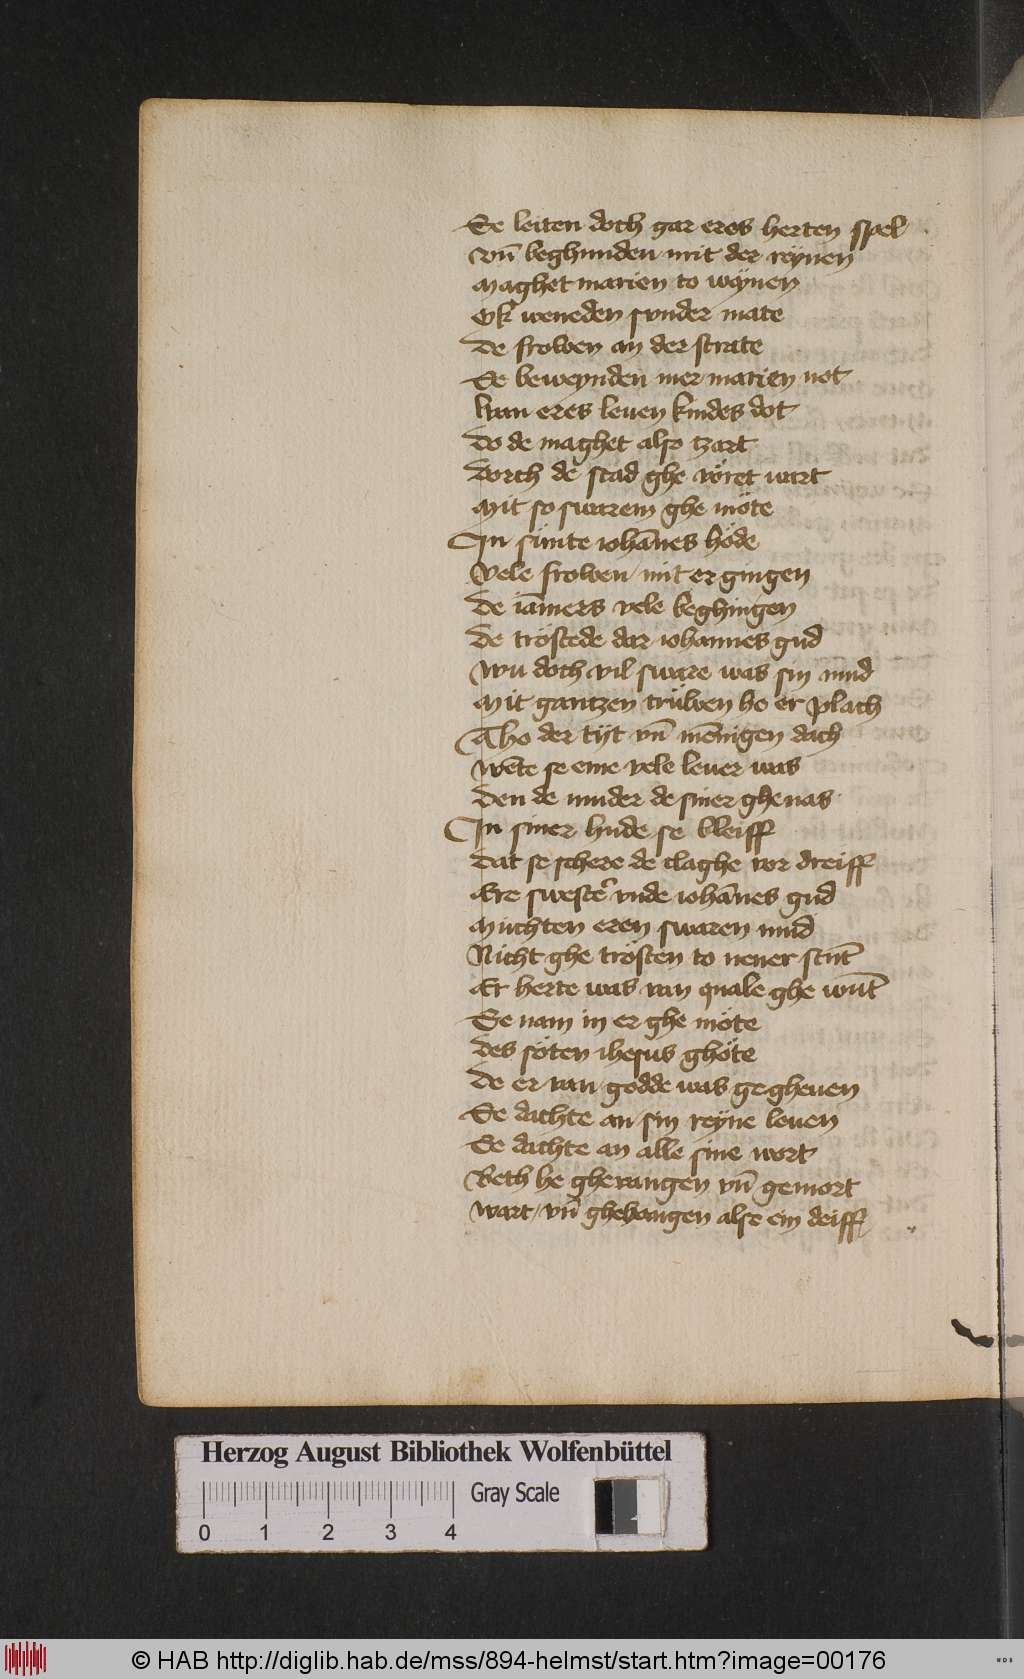 Se leiten doch gar eres herten spel
vn̄ beghunden mit der reynen
Maghet marien to weynen
Ok weneden sunder mate
De frowen an der strate
Se beweynden mer marien not
Wan eres leuen kindes dot
Do de maghet also tzart
Dorch de stad ghe vöret wart
Mit so swarem ghe möte
In sünte iohānes höde
Vele frowen mit er gingen
De iāmers vele beghingen
De tröstede dar iohannes gud
Wu doch vil sware was sin mud
Mit gantzen trüwen he er plach
To der tijt vn̄ mēnigen dach
Wēte se eme vele leuer was
Den de muder de siner ghenas
In siner hude se bleiff
Dat se schere de claghe vor dreiff
Ere swester vnde iohānes gud
Muchten eren swaren mud
Nicht ghe trösten to nener stūt
Er herte was van quale ghe wūt
Se nam in er ghe möte
Des söten ihesus ghöte
De er van godde was gegheuen
Se dachte an sin reyne leuen
Se dachte an alle sine wort
Weth he gheuangen vn̄ gemort
Wart vn̄ ghehangen alse ein deiff
Herzog August Bibliothek Wolfenbüttel
Gray Scale
0 1 2 3 4
© HAB http://diglib.hab.de/mss/894-helmst/start.htm?image=00176